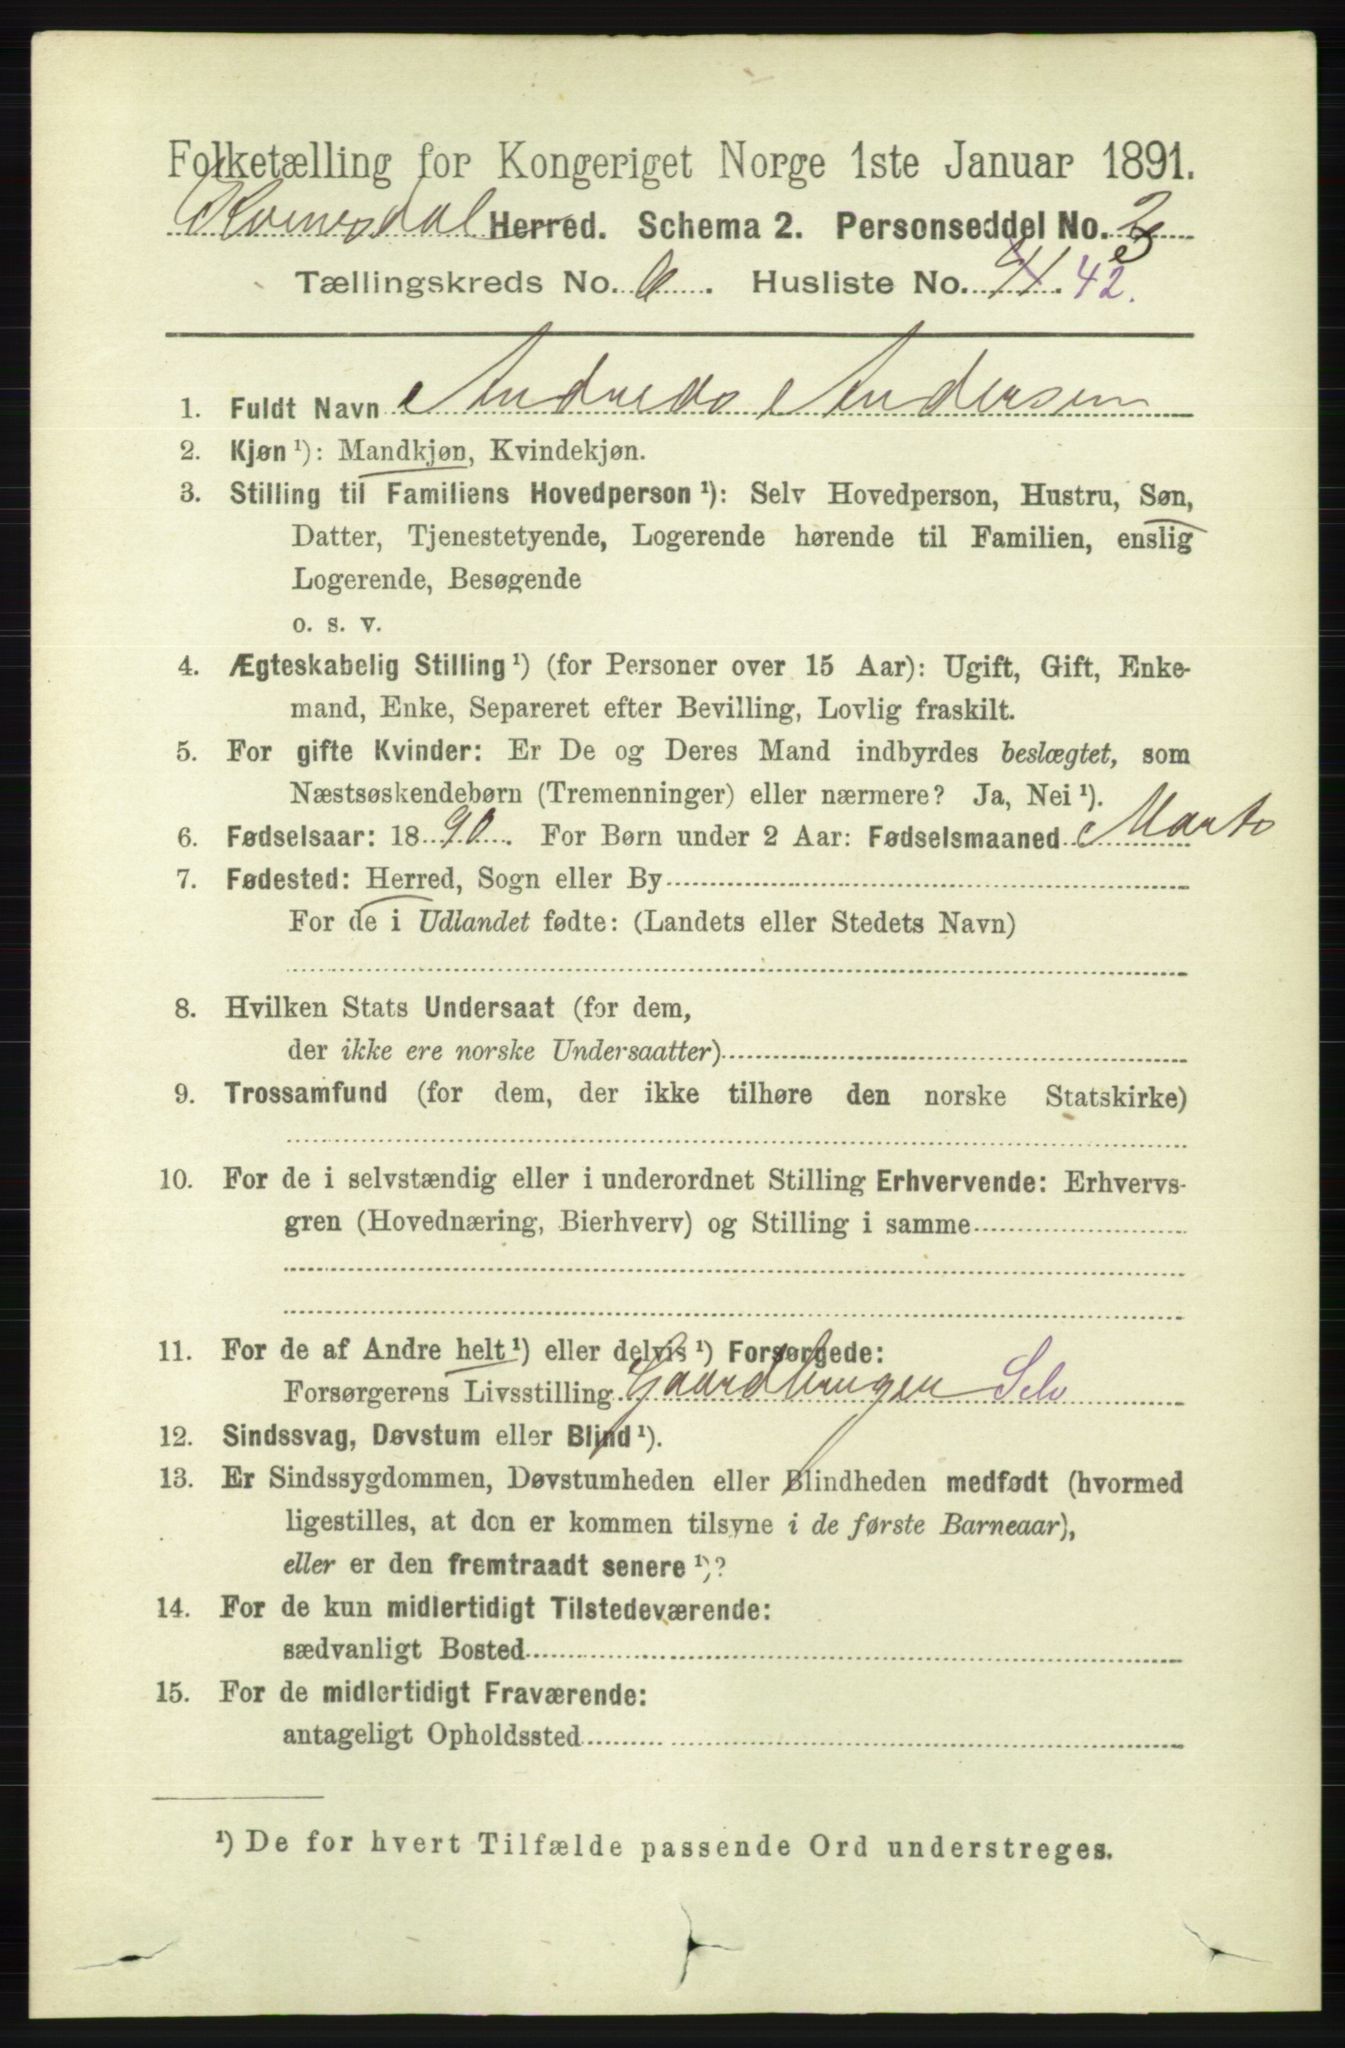 Folketælling for Kongeriget Norge 1ste Januar 1891.
Kvinesdal Herred. Schema 2. Personseddel No. 3
Tællingskreds No. 6. Husliste No. 41. 42.
1. Fuldt Navn Andreas Andersen
2. Kjøn ¹): Mandkjøn, Kvindekjøn.
3. Stilling til Familiens Hovedperson ¹): Selv Hovedperson, Hustru, Søn,
Datter, Tjenestetyende, Logerende hørende til Familien, enslig
Logerende, Besøgende
o. s. v.
4. Ægteskabelig Stilling ¹) (for Personer over 15 Aar): Ugift, Gift, Enke-
mand, Enke, Separeret efter Bevilling, Lovlig fraskilt.
5. For gifte Kvinder: Er De og Deres Mand indbyrdes beslægtet, som
Næstsøskendebørn (Tremenninger) eller nærmere? Ja, Nei ¹).
6. Fødselsaar: 1890. For Børn under 2 Aar: Fødselsmaaned Marts
7. Fødested: Herred, Sogn eller By
For de i Udlandet fødte: (Landets eller Stedets Navn)
8. Hvilken Stats Undersaat (for dem,
der ikke ere norske Undersaatter)
9. Trossamfund (for dem, der ikke tilhøre den norske Statskirke)
10. For de i selvstændig eller i underordnet Stilling Erhvervende: Erhvervs-
gren (Hovednæring, Bierhverv) og Stilling i samme
11. For de af Andre helt ¹) eller delvis ¹) Forsørgede:
Forsørgerens Livsstilling Gaardbruger Selv
12. Sindssvag, Døvstum eller Blind ¹).
13. Er Sindssygdommen, Døvstumheden eller Blindheden medfødt (hvormed
ligestilles, at den er kommen tilsyne i de første Barneaar),
eller er den fremtraadt senere ¹)?
14. For de kun midlertidigt Tilstedeværende:
sædvanligt Bosted
15. For de midlertidigt Fraværende:
antageligt Opholdssted
¹) De for hvert Tilfælde passende Ord understreges.